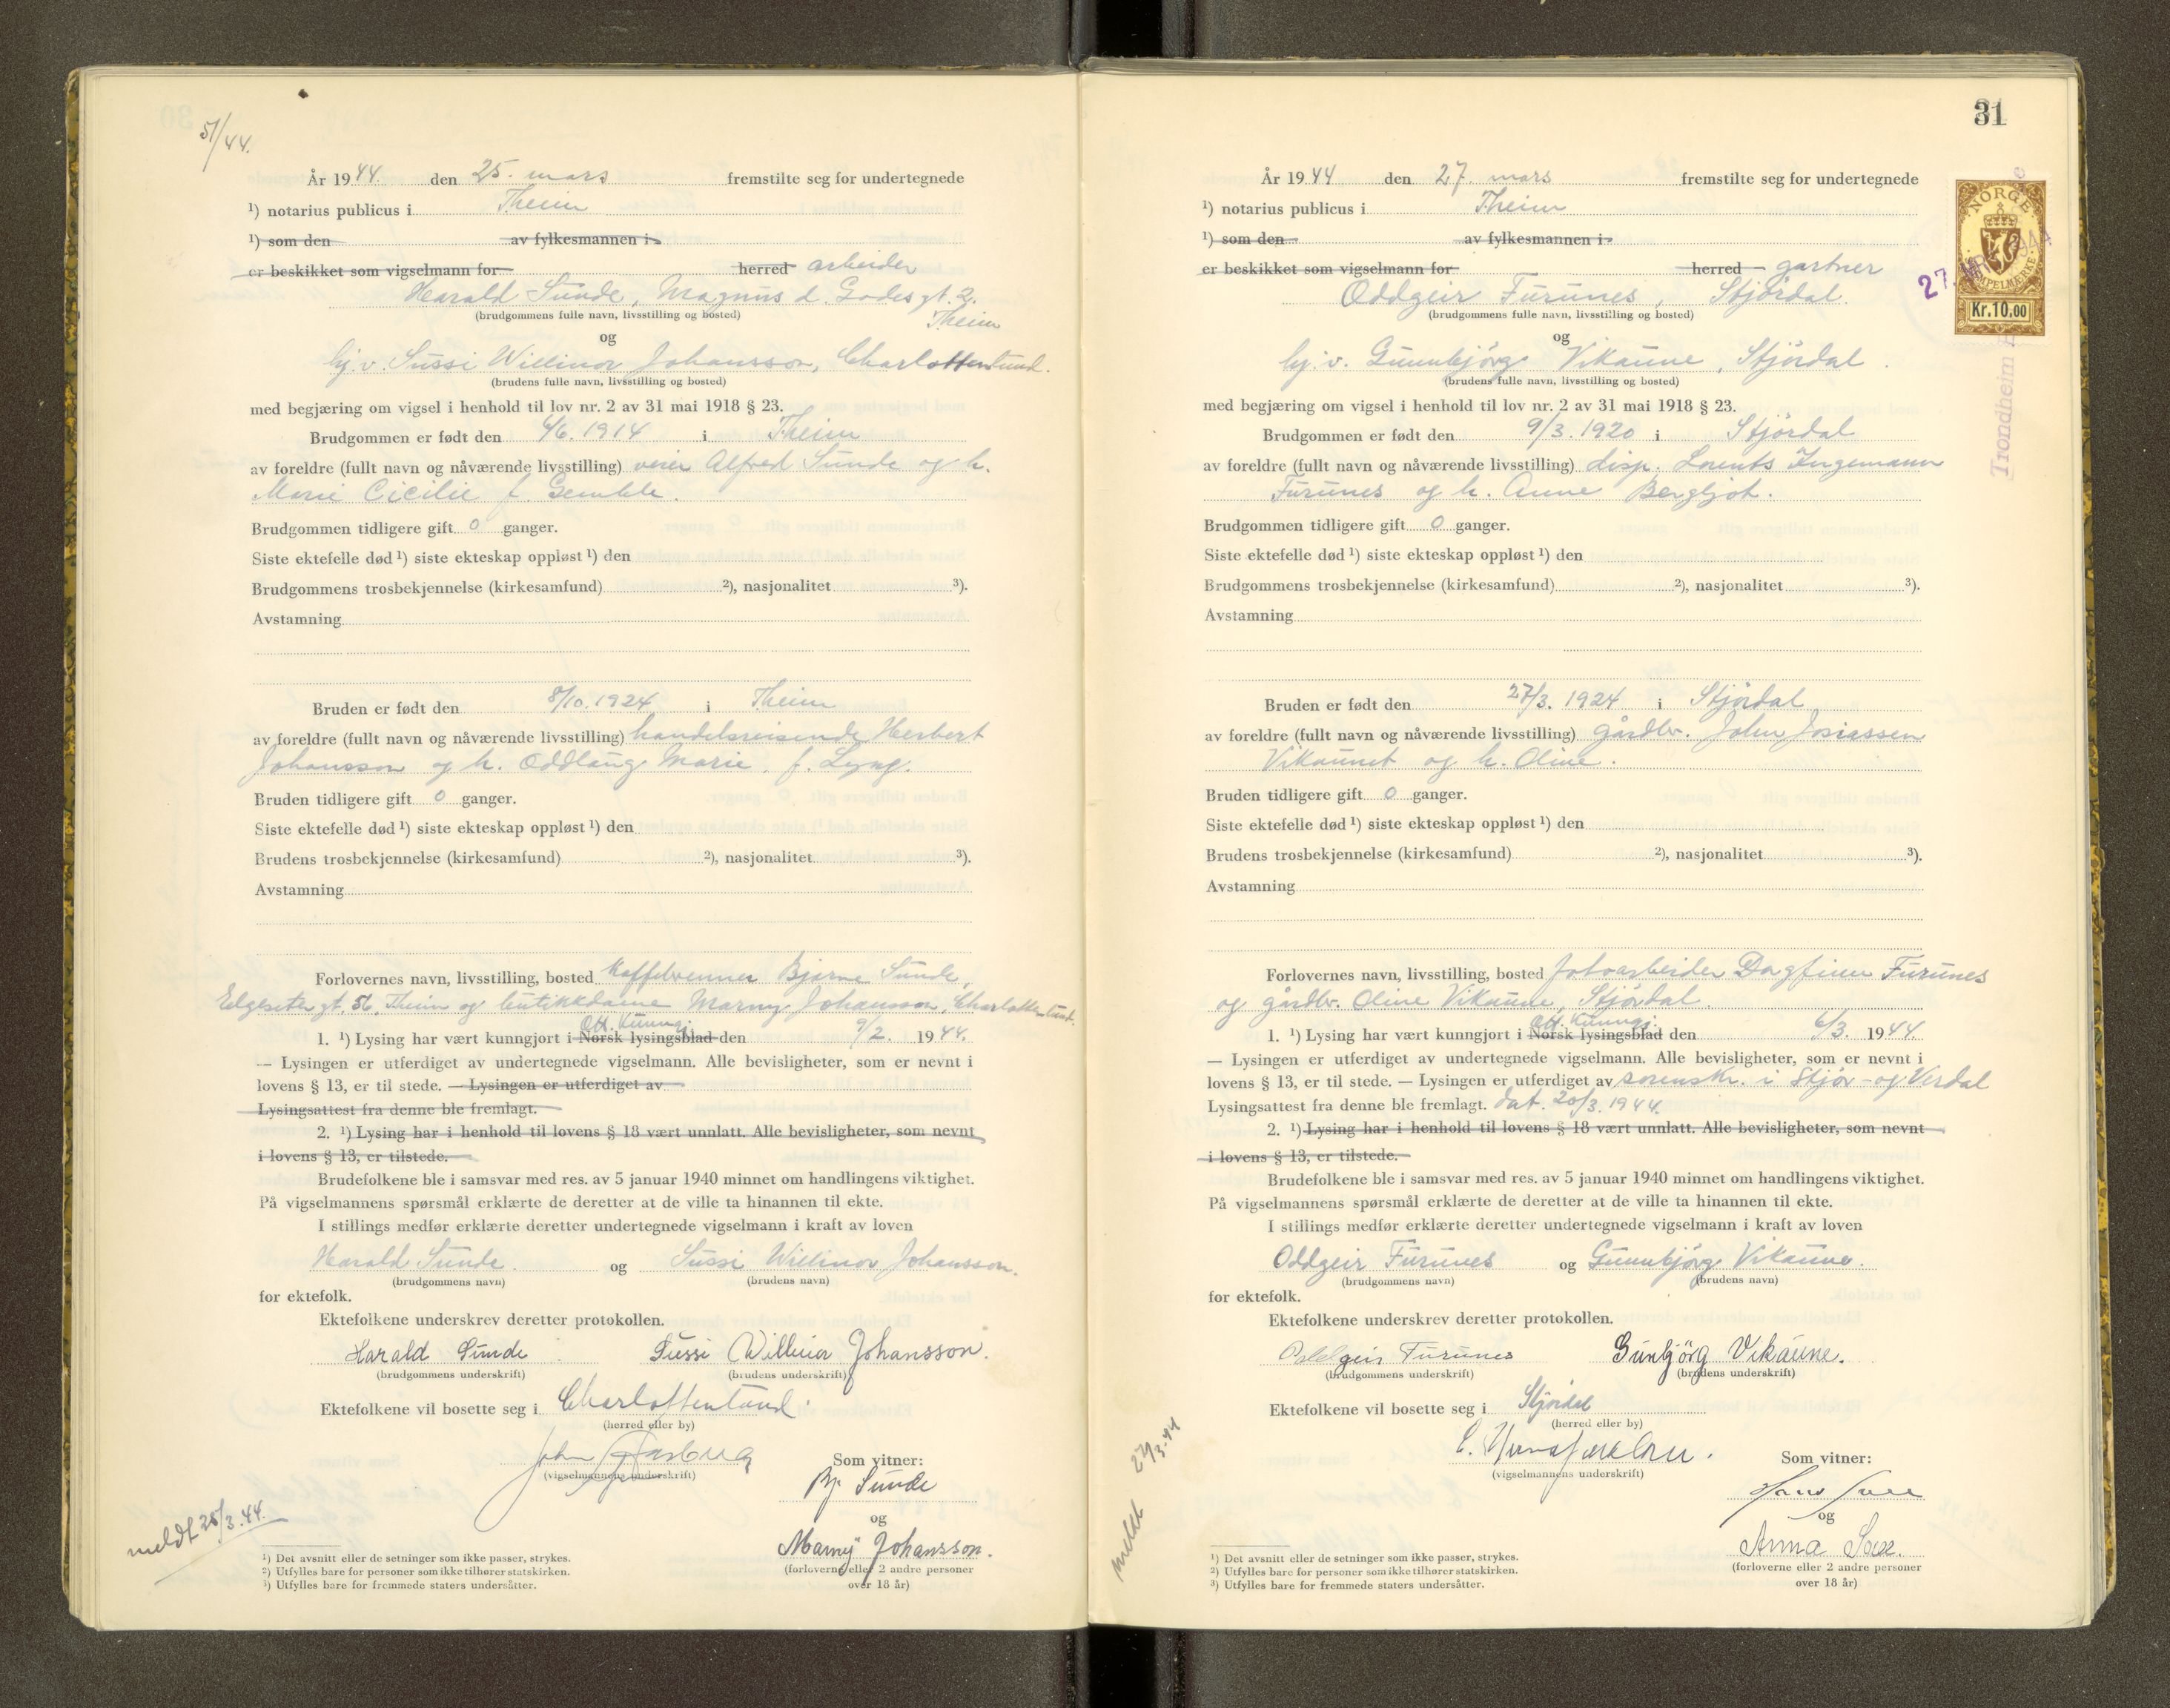 51/44.
År 1944. den 25. mars fremstilte seg for undertegnede
¹) notarius publicus i Theim
¹) som den av fylkesmannen i
er beskikket som vigselmann for herred arbeider
Harald Sunde, Magnus d. Godes gt. 2.
(brudgommens fulle navn, livsstilling og bosted)
Theim
og
hj.v. Sussi Willinor Johansson, Charlottenlund.
(brudens fulle navn, livsstilling og bosted)
med begjæring om vigsel i henhold til lov nr. 2 av 31 mai 1918 § 23.
Brudgommen er født den 4/6. 1914 i Theim
av foreldre (fullt navn og nåværende livsstilling) veier Alfred Sunde og h.
Marie Cicilie f. Gemble.
Brudgommen tidligere gift 0 ganger.
Siste ektefelle død ¹) siste ekteskap oppløst ¹) den
Brudgommens trosbekjennelse (kirkesamfund) ²), nasjonalitet ³).
Avstamning
Bruden er født den 8/10. 1924 i Theim
av foreldre (fullt navn og nåværende livsstilling) handelsreisende Herbert
Johansson og h. Oddlaug Marie, f. Lyng.
Bruden tidligere gift 0 ganger.
Siste ektefelle død ¹) siste ekteskap oppløst ¹) den
Brudens trosbekjennelse (kirkesamfund) ²), nasjonalitet ³).
Avstamning
Forlovernes navn, livsstilling, bosted Kaffebrenner Bjarne Sunde,
Elgeseter gt. 56, Theim og butikkdame Marny Johansson, Charlottenlund.
Off. Kunngj.
1. ¹) Lysing har vært kunngjort i Norsk lysingsblad den 9/2. 1944.
— Lysingen er utferdiget av undertegnede vigselmann. Alle bevisligheter, som er nevnt i
lovens § 13, er til stede. — Lysingen er utferdiget av
Lysingsattest fra denne ble fremlagt.
2. ¹) Lysing har i henhold til lovens § 18 vært unnlatt. Alle bevisligheter, som nevnt
i lovens § 13, er tilstede.
Brudefolkene ble i samsvar med res. av 5 januar 1940 minnet om handlingens viktighet.
På vigselmannens spørsmål erklærte de deretter at de ville ta hinannen til ekte.
I stillings medfør erklærte deretter undertegnede vigselmann i kraft av loven
Harald Sunde. og Sussi Willinor Johansson.
(brudgommens navn) (brudens navn)
for ektefolk.
Ektefolkene underskrev deretter protokollen.
Harald Sunde Sussi Willinor Johansson.
(brudgommens underskrift) (brudens underskrift)
Ektefolkene vil bosette seg i Charlottenlund.
(herred eller by)
John
(vigselmannens underskrift)
Som vitner:
Bj. Sunde
og
Marny Johansson.
(forloverne eller 2 andre personer
over 18 år)
meldt 28/3.44.
¹) Det avsnitt eller de setninger som ikke passer, strykes.
²) Utfylles bare for personer som ikke tilhører statskirken.
³) Utfylles bare for fremmede staters undersåtter.
31
År 1944 den 27. mars fremstilte seg for undertegnede
¹) notarius publicus i Theim
¹) som den av fylkesmannen i
er beskikket som vigselmann for herred gartner
Oddgeir Furunes, Stjørdal.
(brudgommens fulle navn, livsstilling og bosted)
og
hj.v. Gunnbjørg Vikaune, Stjördal.
(brudens fulle navn, livsstilling og bosted)
med begjæring om vigsel i henhold til lov nr. 2 av 31 mai 1918 § 23.
Brudgommen er født den 9/3. 1920 i Stjördal
av foreldre (fullt navn og nåværende livsstilling) disp. Lorents Ingemann
Furunes og h. Anne Bergljot.
Brudgommen tidligere gift 0 ganger.
Siste ektefelle død ¹) siste ekteskap oppløst ¹) den
Brudgommens trosbekjennelse (kirkesamfund) ²), nasjonalitet ³).
Avstamning
Bruden er født den 27/3. 1924 i Stjördal
av foreldre (fullt navn og nåværende livsstilling) gårdbr. John Josiassen
Vikaunet og h. Oline.
Bruden tidligere gift 0 ganger.
Siste ektefelle død ¹) siste ekteskap oppløst ¹) den
Brudens trosbekjennelse (kirkesamfund) ²), nasjonalitet ³).
Avstamning
Forlovernes navn, livsstilling, bosted Jotoarbeider Dagfinn Furunes
og gårdbr. Oline Vikaune, Stjördal.
Off. Kunngj.
1. ¹) Lysing har vært kunngjort i Norsk lysingsblad den 6/3. 1944.
— Lysingen er utferdiget av undertegnede vigselmann. Alle bevisligheter, som er nevnt i
lovens § 13, er til stede. — Lysingen er utferdiget av sorenskr. i Stjør- og Verdal
Lysingsattest fra denne ble fremlagt. dat. 20/3. 1944.
2. ¹) Lysing har i henhold til lovens § 18 vært unnlatt. Alle bevisligheter, som nevnt
i lovens § 13, er tilstede.
Brudefolkene ble i samsvar med res. av 5 januar 1940 minnet om handlingens viktighet.
På vigselmannens spørsmål erklærte de deretter at de ville ta hinannen til ekte.
I stillings medfør erklærte deretter undertegnede vigselmann i kraft av loven
Oddgeir Furunes og Gunnbjörg Vikaune.
(brudgommens navn) (brudens navn)
for ektefolk.
Ektefolkene underskrev deretter protokollen.
Oddgeir Furunes Gunbjörg Vikaune.
(brudgommens underskrift) (brudens underskrift)
Ektefolkene vil bosette seg i Stjördal
(herred eller by)
(vigselmannens underskrift)
Som vitner:
Hans
og
Anna
(forloverne eller 2 andre personer
over 18 år)
meldt 27/3.44
¹) Det avsnitt eller de setninger som ikke passer, strykes.
²) Utfylles bare for personer som ikke tilhører statskirken.
³) Utfylles bare for fremmede staters undersåtter.
NORGE
STEMPELMERKE
Kr. 10.00
27. MRS 1944
Trondheim